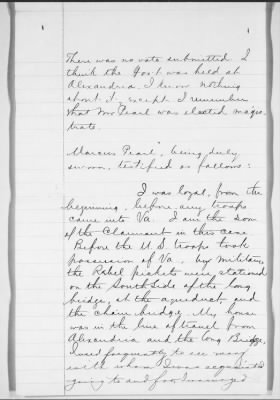 There was no vote submitted I
think the Gov't was held at
Alexandria. I know nothing
about it except I remember
that Mr Pearl was elected magis-
trate.
Marcus Pearl, being duly
sworn, testified as follows:
I was loyal, from the
beginning, before any troops
came into Va. I am the son
of the Claimant in this case
Before the U.S. troops took
possession of Va, by military
the Rebel pickets were stationed
on the South side of the long
bridge, at the aqueduct and
the chain bridge. My house
was in the line of travel from
Alexandria and the Long Bridge,
I used frequently to see many
with whom I was acquainted
going to and fro